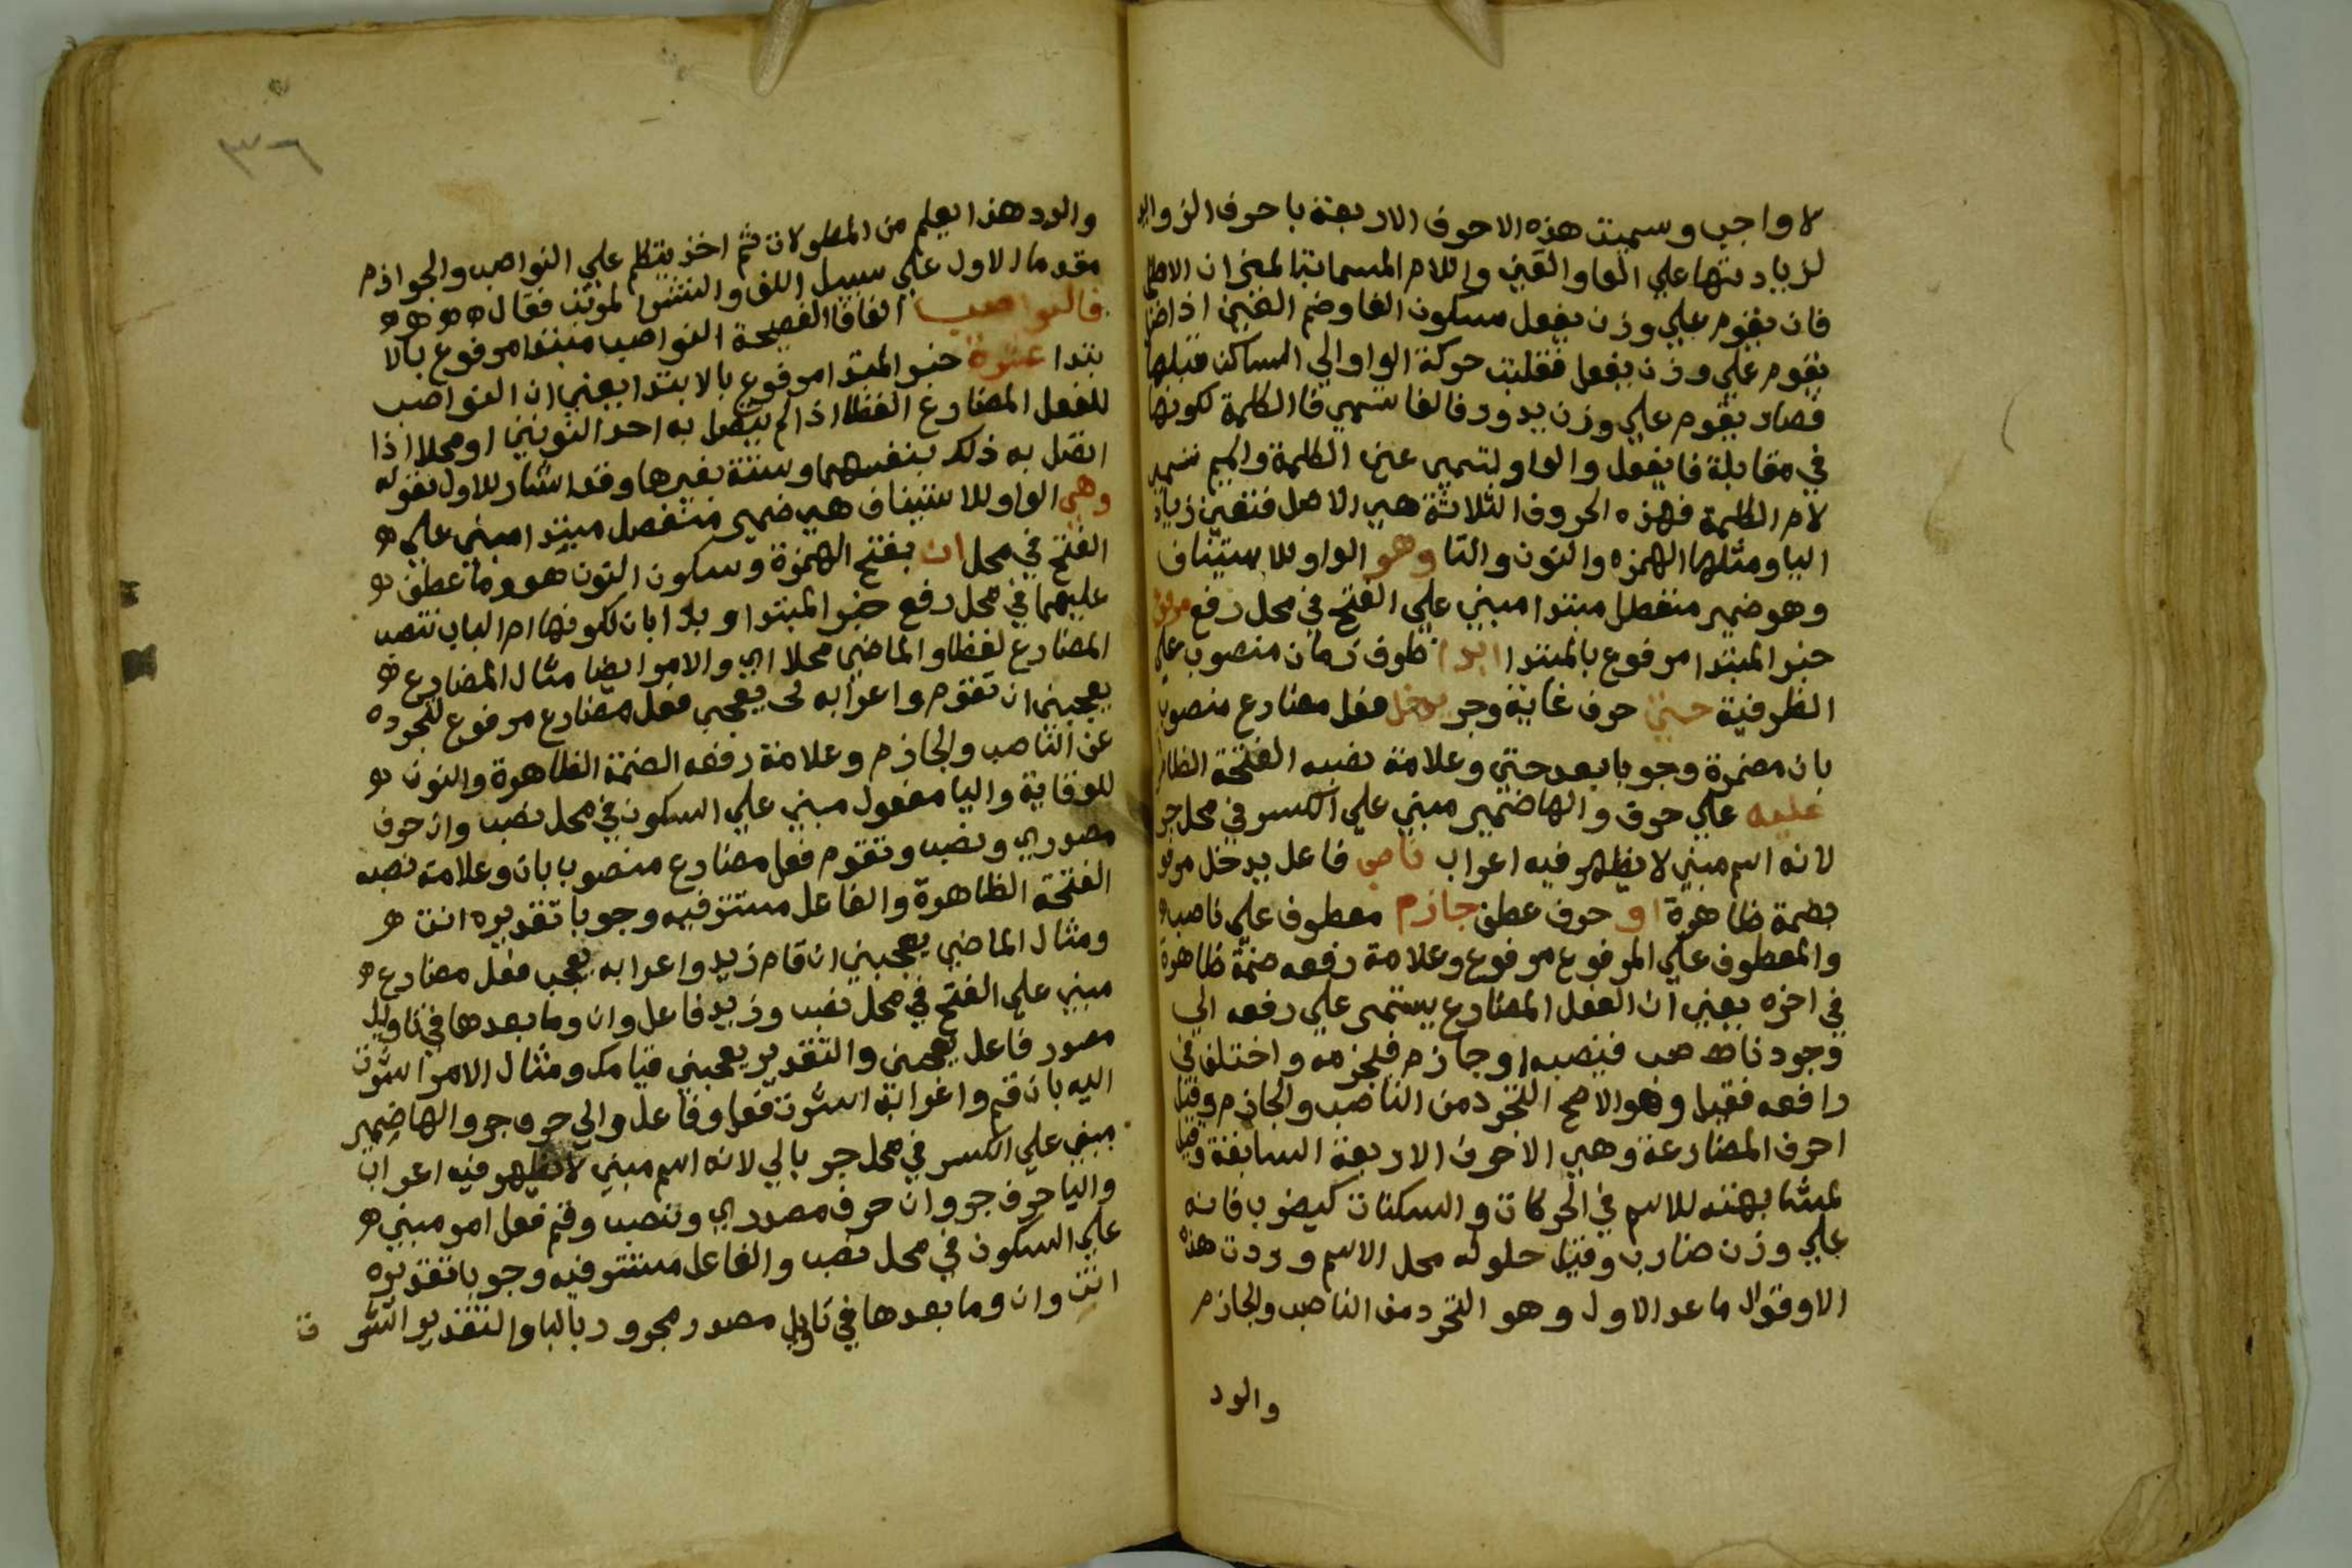 لا واجب وسميت هذه الاحرف الاربعة باحرف الزوايد
لزيادتها علي الفا والعين واللام المسمات
فان يقوم علي وزن يفعل بسكون الفا وضم العين اذ اصل
يقوم علي وزن يفعل فنقلت حركة الواو الي الساكن قبلها
فصار يقوم علي وزن يدور فالفا تسمي فا الكلمة لكونها
في مقابلة فا يفعل والواو لتسمي عين الكلمة والميم تسمي
لام الكلمة فهذه الحروف الثلاثة هي الاصل فتعين زيادة
اليا ومثلها الهمزه والنون والتا وهو الواو للاستيناف
وهو ضمير منفصل مبتدا مبني علي الفتح في محل رفع مرفوع
خبر المبتدا مرفوع بالمبتدا ابدا ظرف زمان منصوب علي
الظرفية حتي حرف غاية وجر يدخل فعل مضارع منصوب
بان مضمرة وجوبا بعد حتي وعلامة نصبه الفتحة الظاهرة
عليه علي حرف والها ضمير مبني علي الكسر في محل جر
لانه اسم مبني لا يظهر فيه اعراب ناصب فاعل يدخل مرفوع
بضمة ظاهرة او حرف عطف جازم معطوف علي ناصب
والمعطوف علي المرفوع مرفوع وعلامة رفعه ضمة ظاهرة
في اخره يعني ان الفعل المضارع يستمر علي رفعه الي
وجود ناصب فينصبه او جازم فيجزمه واختلف في
رافعه فقيل وهو الاصح التجرد من الناصب والجازم وقيل
احرف المضارعة وهي الاحرف الاربعة السابقة وقيل
لمشابهته للاسم في الحركات والسكنات كيضرب فانه
علي وزن ضارب وقيل حلوله محل الاسم وردت هذه
الاوقوال ماعد الاول وهو التجرد من الناصب والجازم
والرد
٣٦
والرد هذا يعلم من المطولات ثم اخذ يتكلم علي النواصب والجوازم
مقدما الاول علي سبيل اللف والنشر المرتب فقال ه ه ه ه
فالنواصب الفا فا الفصيحة النواصب مبتدا مرفوع بالا
بتدا عشرة خبر المبتدا مرفوع بالابتدا يعني ان النواصب
للفعل المضارع لفظا اذا لم يتصل به احد النونين او محلا اذا
اتصل به ذلك بنفسها وستة بغيرها وقد اشار للاول بقوله
وهي الواو للاستيناف هي ضمير منفصل مبتدا مبني علي ه
الفتح في محل ان بفتح الهمزة وسكون النون هو وما عطف
عليهما في محل رفع خبر المبتدا وبدا بان لكونها ام الباب تنصب
المضارع لفظا والماضي محلا اي والامر ايضا مثال المضارع ه
يعجبني ان تقوم واعرابه يعجبني فعل مضارع مرفوع لتجرده
عن الناصب والجازم وعلامة رفعه الضمة الظاهرة والنون
للوقاية واليا مفعول مبني علي السكون في محل نصب وان حرف
مصدري ونصب وتقوم فعل مضارع منصوب بان وعلامة نصبه
الفتحة الظاهرة والفاعل مستتر فيه وجوبا تقديره انت ه
ومثال الماضي يعجبني ان قام زيد واعرابه يعجب فعل مضارع ه
مبني علي الفتح في محل نصب وزيد فاعل وان وما بعدها في تاويل
مصدر فاعل يعجبني والتقدير يعجبني قيامك ومثال الامر اشرت
اليه بان قم واعرابه اشرت فعل وفاعل والي حرف جر والها ضمير
مبني علي الكسر في محل جر بالي لانه اسم مبني لا يظهر فيه اعراب
واليا حرف جر وان حرف مصدري وتنصب وقم فعل امر مبني ه
علي السكون في محل نصب والفاعل مستتر فيه وجوبا تقديره
انت وان وما بعدها في تاويل مصدر مجرور بالبا والتقدير اشر ت